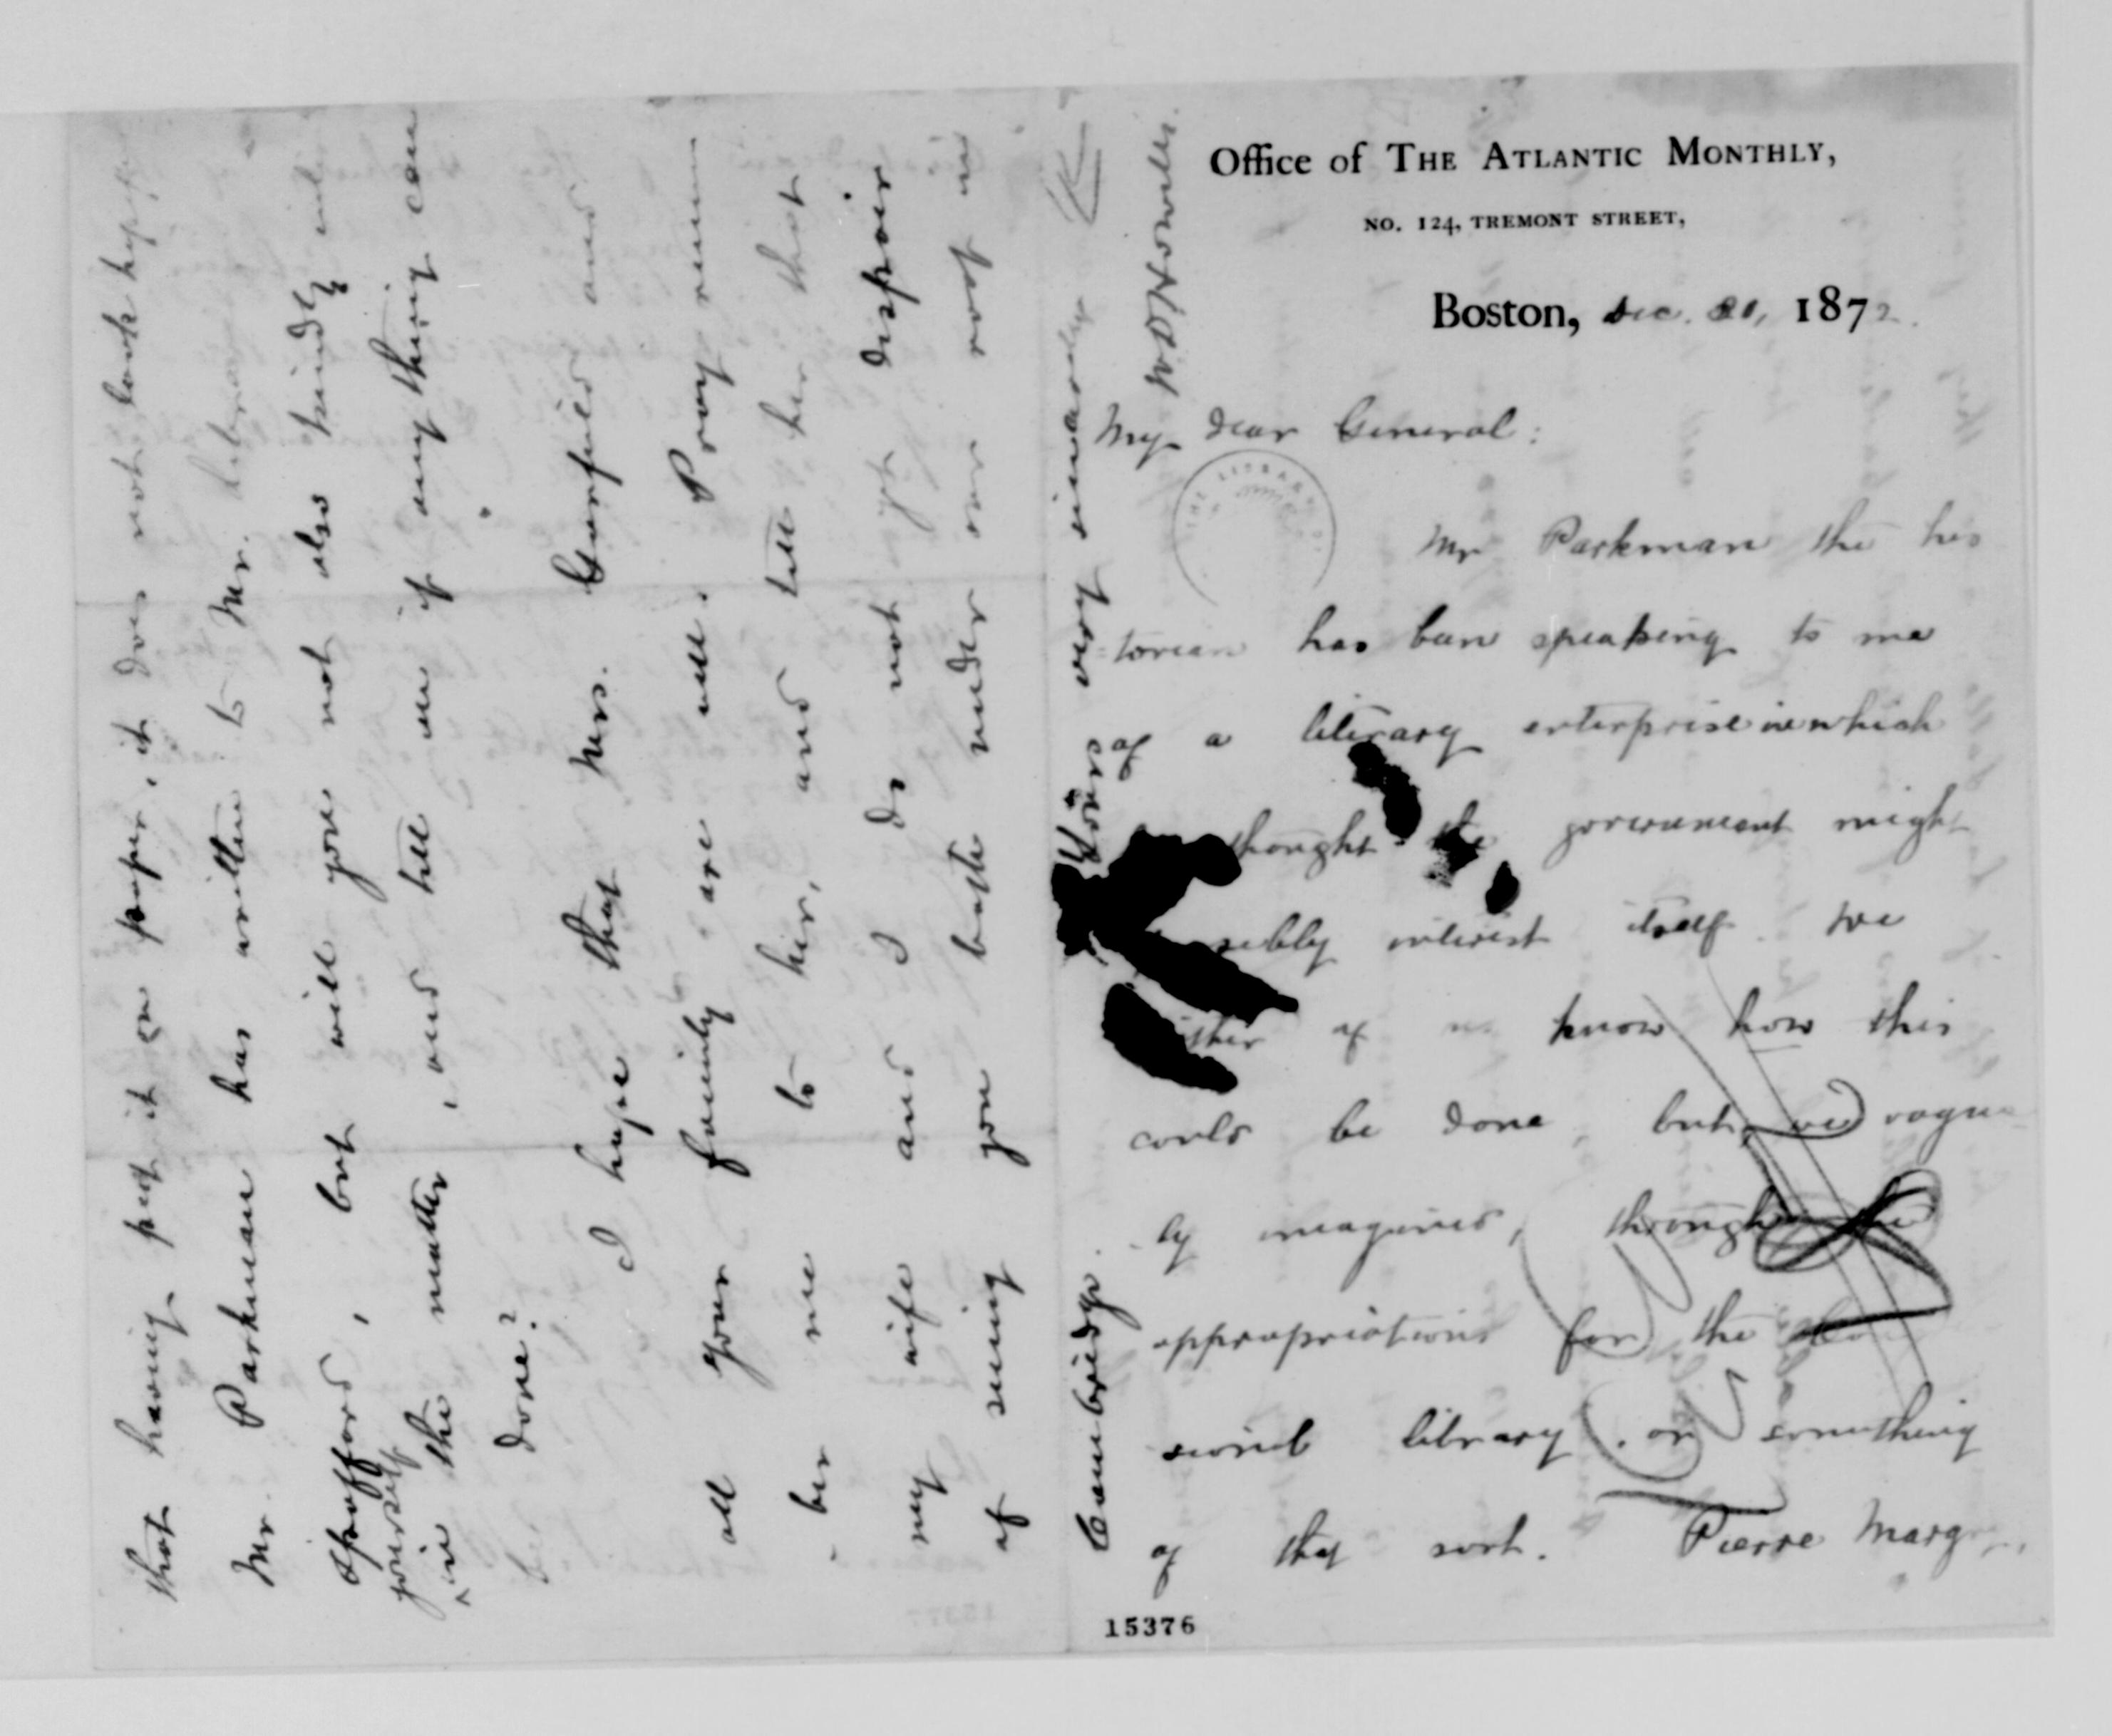 Office of THE ATLANTIC MONTHLY,
NO. 124, TREMONT STREET,
Boston, Dec. 1872.
My dear General:
Mr Parkman the his
=torian has been speaking to me
of a literary enterprise in which
thought the government might
sibly interest itself. We
ther of us know how this
could be done, but we vague
ly imagined, through the
appropriations for the
library, or something
of that sort. Pierre Marg
15376
that having put it on paper, it does not look
Mr. Parkman has written to Mr.
Spofford, but will you not also kindly
yourself
in the matter, and tell me if any thing can
be done?
I hope that Mrs. Garfield and
all your family are well. Pray remem
-ber me to her, and tell her that
my wife and I do not yet despair
of seeing you both under our roof in
Cambridge.
Yours very sincerely
W. D. Howells.